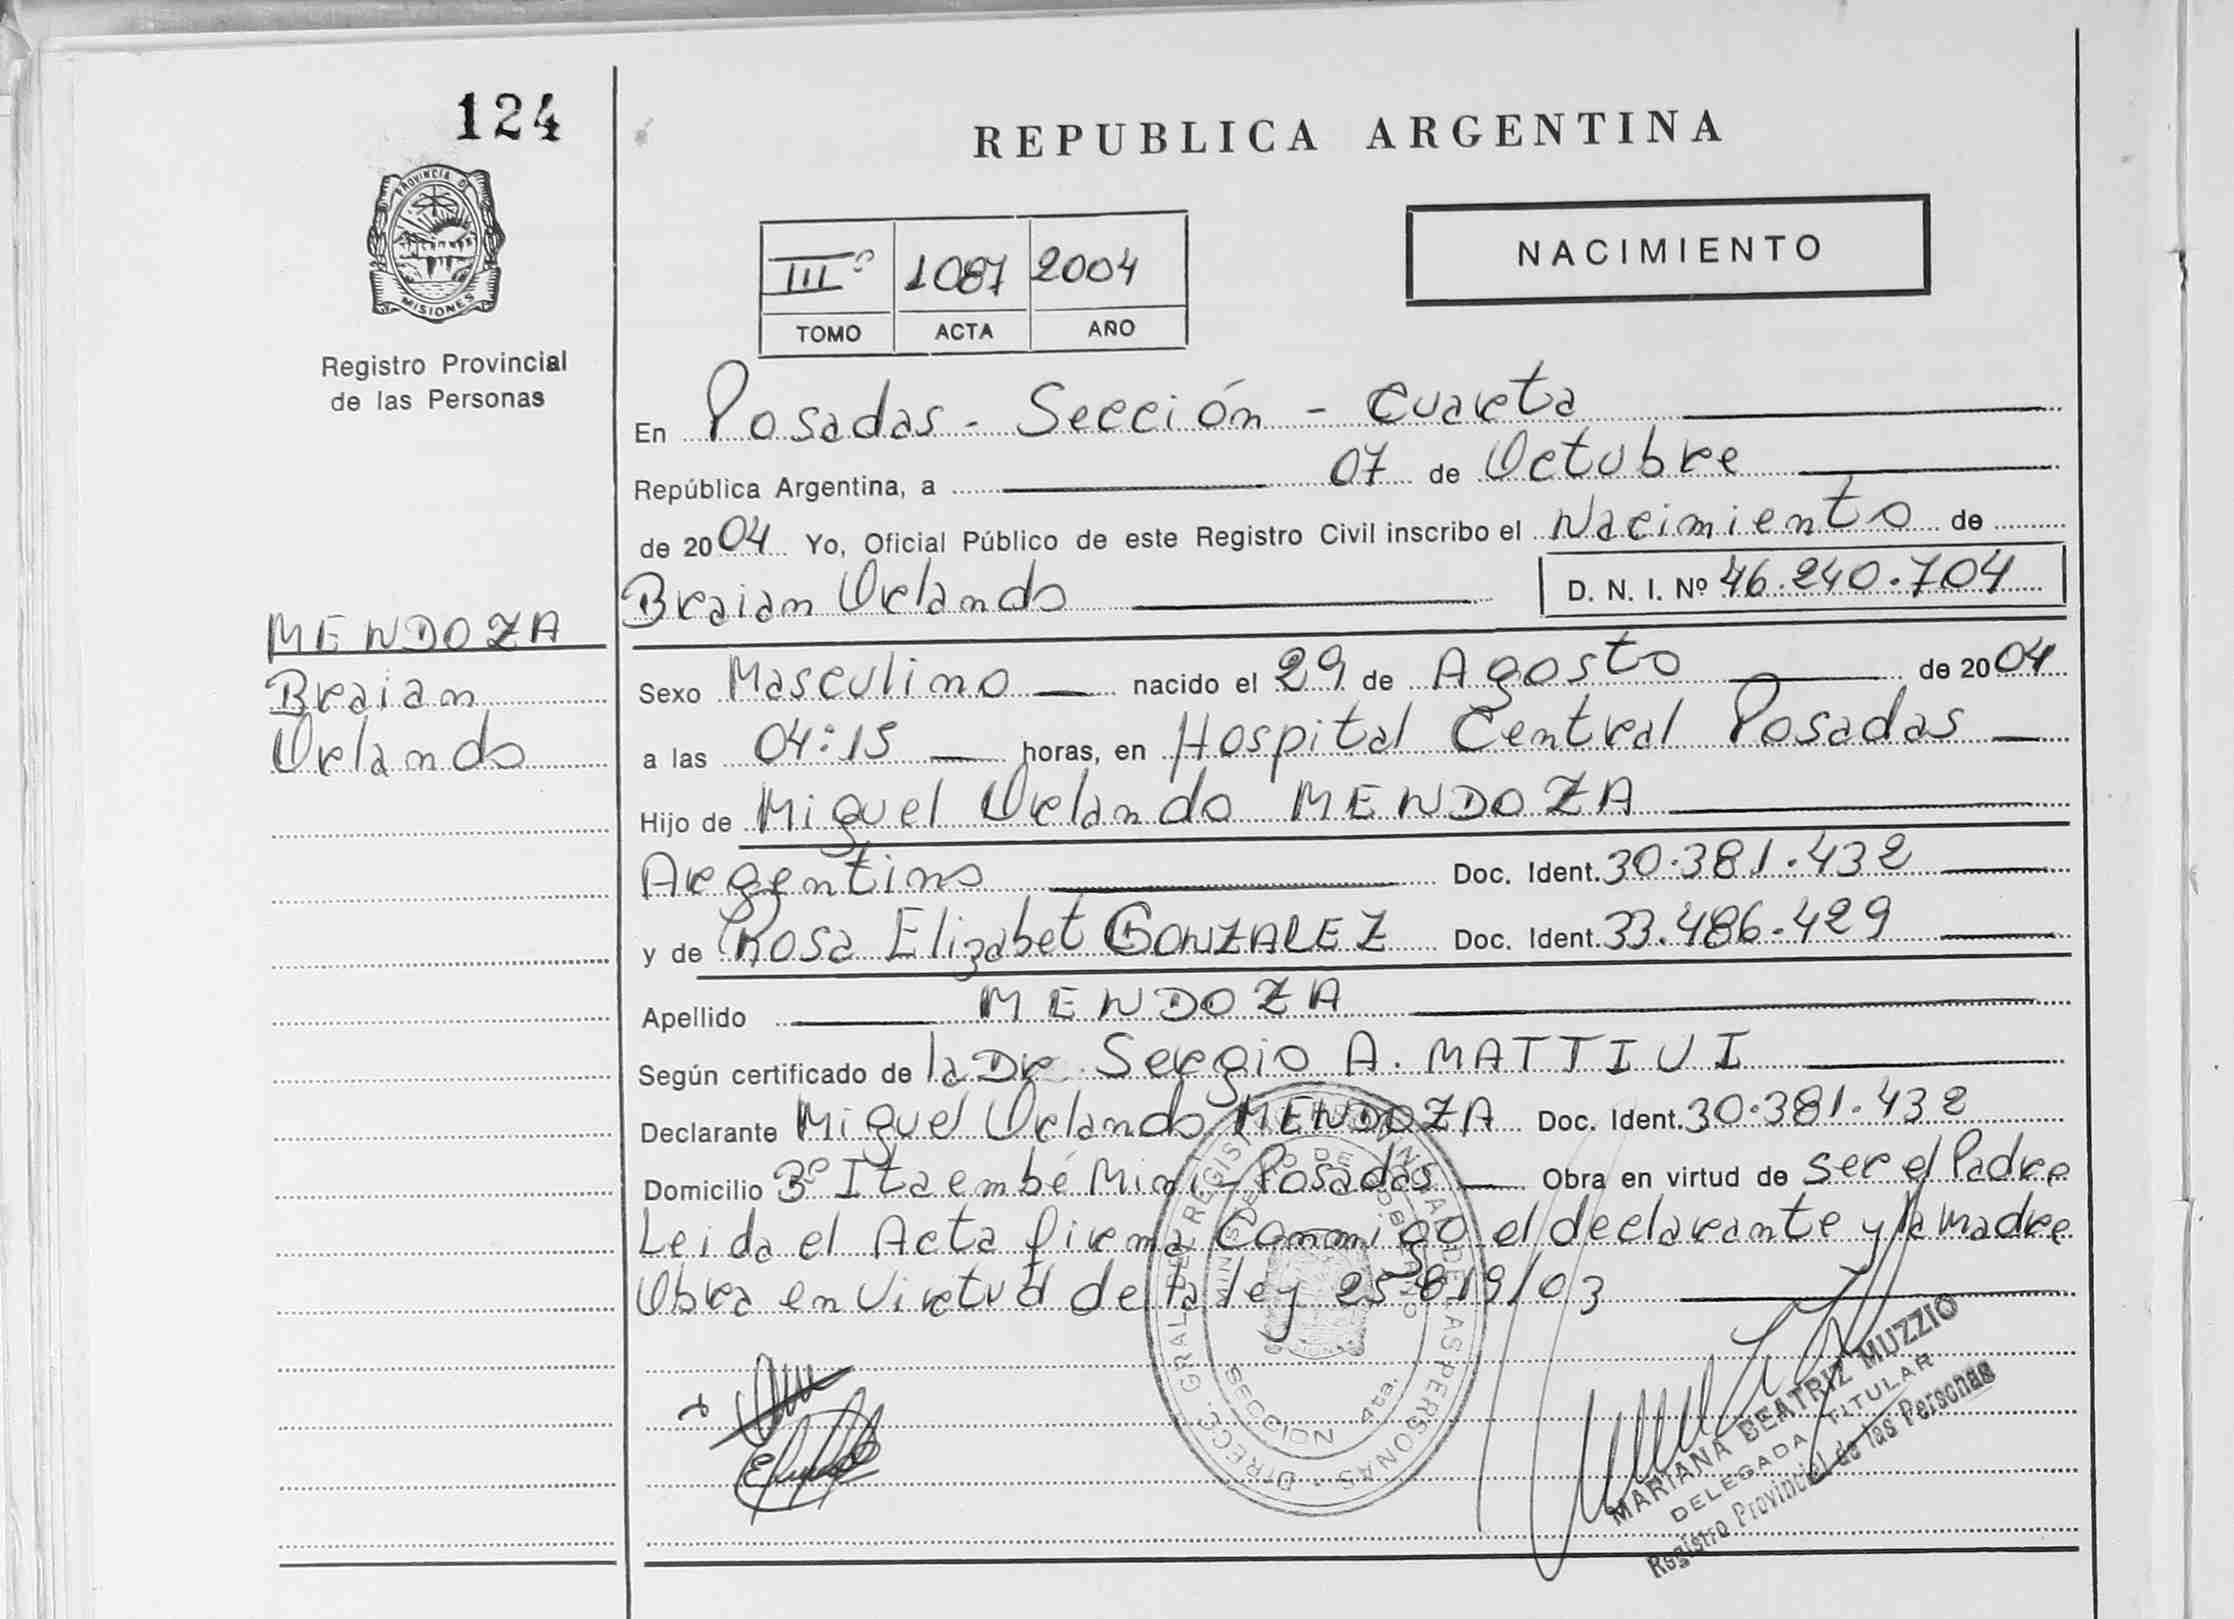 124
PROVINCIA D
MISIONES
Registro Provincial
de las Personas
MENDOZA
Braian
Orlando
REPUBLICA ARGENTINA
NACIMIENTO
IIIº 1087 2004
TOMO ACTA AÑO
En Posadas - Sección - Cuarta
República Argentina, a 07 de Octubre
de 2004 Yo, Oficial Público de este Registro Civil inscribo el Nacimiento de
Braian Orlando D. N. I. Nº 46.240.704
Sexo Masculino nacido el 29 de Agosto de 2004
a las 04:15 horas, en Hospital Central Posadas
Hijo de Miguel Orlando MENDOZA
Argentino Doc. Ident. 30.381.432
y de Rosa Elizabet GONZALEZ Doc. Ident. 33.486.429
Apellido MENDOZA
Según certificado de la Dr. Sergio A. MATTIUI
Declarante Miguel Orlando MENDOZA Doc. Ident. 30.381.432
Domicilio 3º Itaembé Mini - Posadas Obra en virtud de ser el Padre
Leida el Acta firma Conmigo el declarante y la madre
Obra en Virtud de la ley 25819/03
DIRECC. GRAL. DEL REGIS PERSONAS
SECCION 4ta.
MARIANA BEATRIZ MUZZIO
DELEGADA TITULAR
Registro Provincial de las Personas